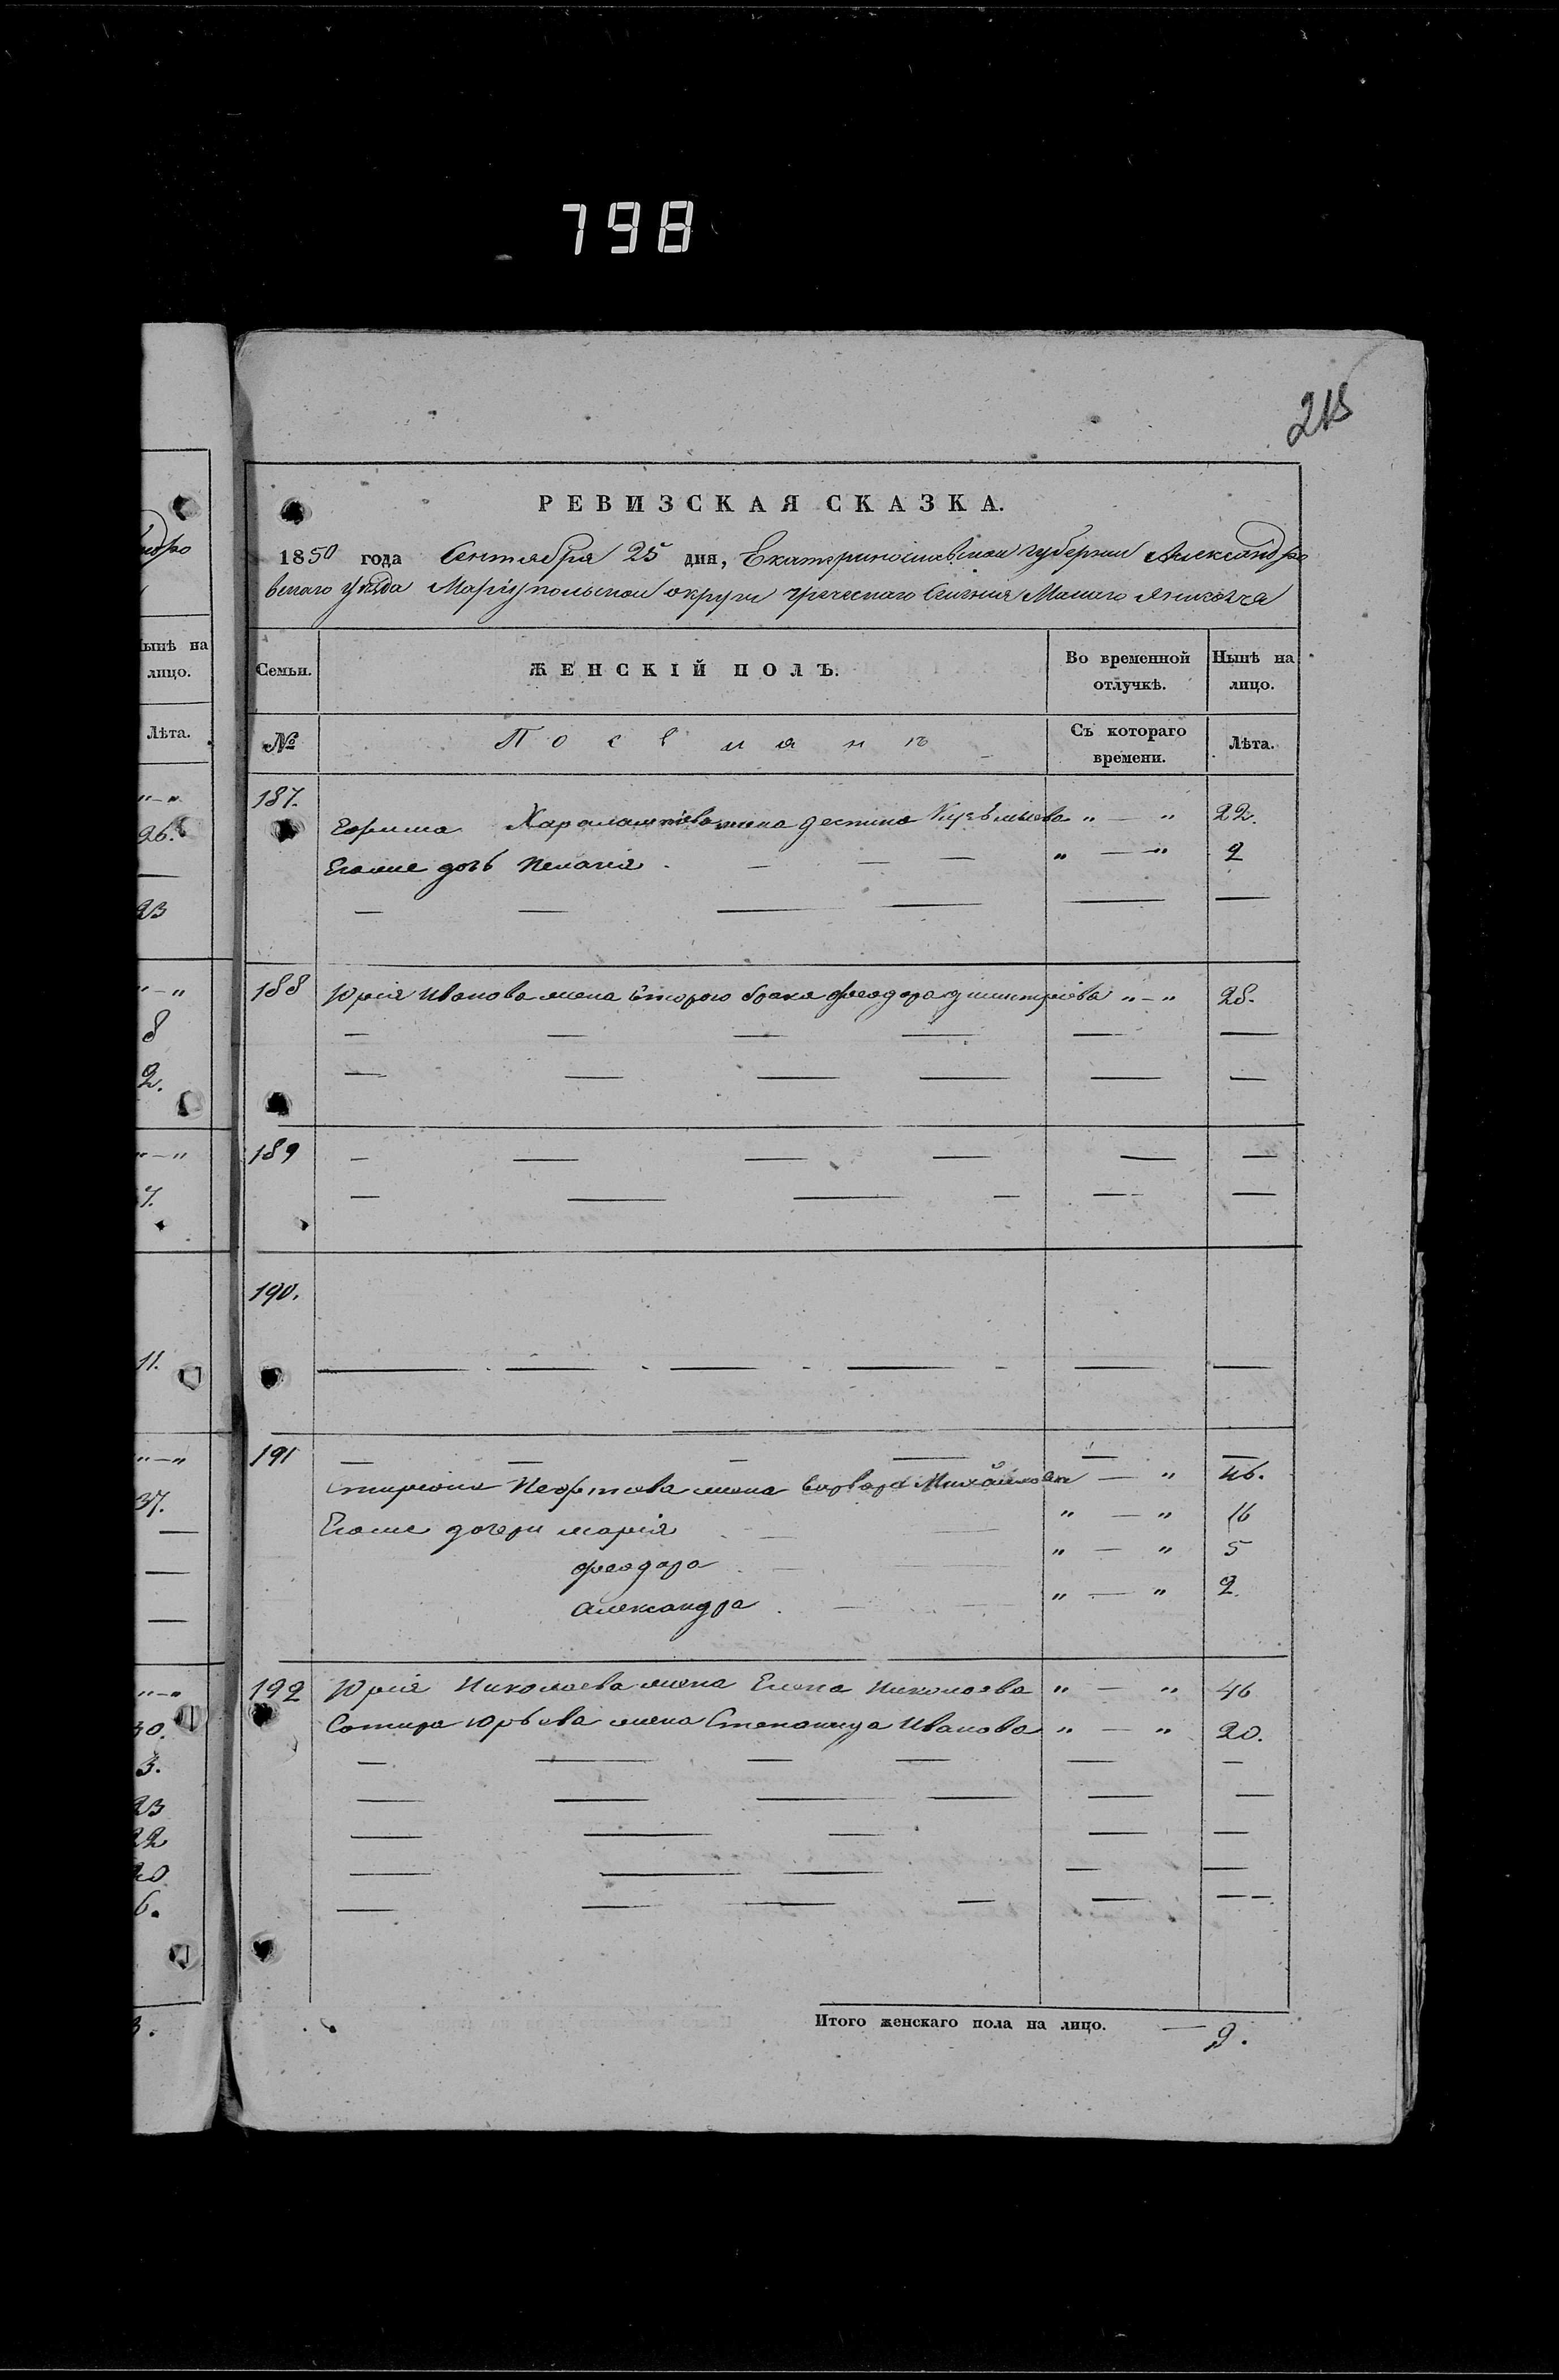 798
215
ндро
РЕВИЗСКАЯ СКАЗКА.
1850 года Сентября 25 дня, Екатеринославской губернии Александро
вскаго уѣзда Маріупольскои округи греческаго Селенія Малаго Янисоля
Нынѣ на
лицо.
Лѣта.
Семьи. ЖЕНСКІЙ ПОЛЪ. Во временной отлучкѣ. Нынѣ на лицо.
№ Поселянъ Съ котораго времени. Лѣта.
187.
Ефима Харалампіева жена Деспина Кузьмыева " — " 22.
Егоже дочь Пелагія — — — " — " 2
188 Юрія Иванова жена втораго брака Феодора Дмитріева " — " 28.
189
190.
191
Спиридона Неофитова жена Варвара Михайлова " — " 46.
Егоже дочери Марія " — " 16
Феодора " — " 5
Александра " — " 2.
192 Юрія Николаева жена Елена Николаева " — " 46
Сотира Юрьева жена Степанида Иванова " — " 20.
Итого женскаго пола на лицо. — 9.
26.
23
"—"
8
2.
"—"
7.
11.
"—"
37.
"—"
30.
3.
23
22
20
6.
3.